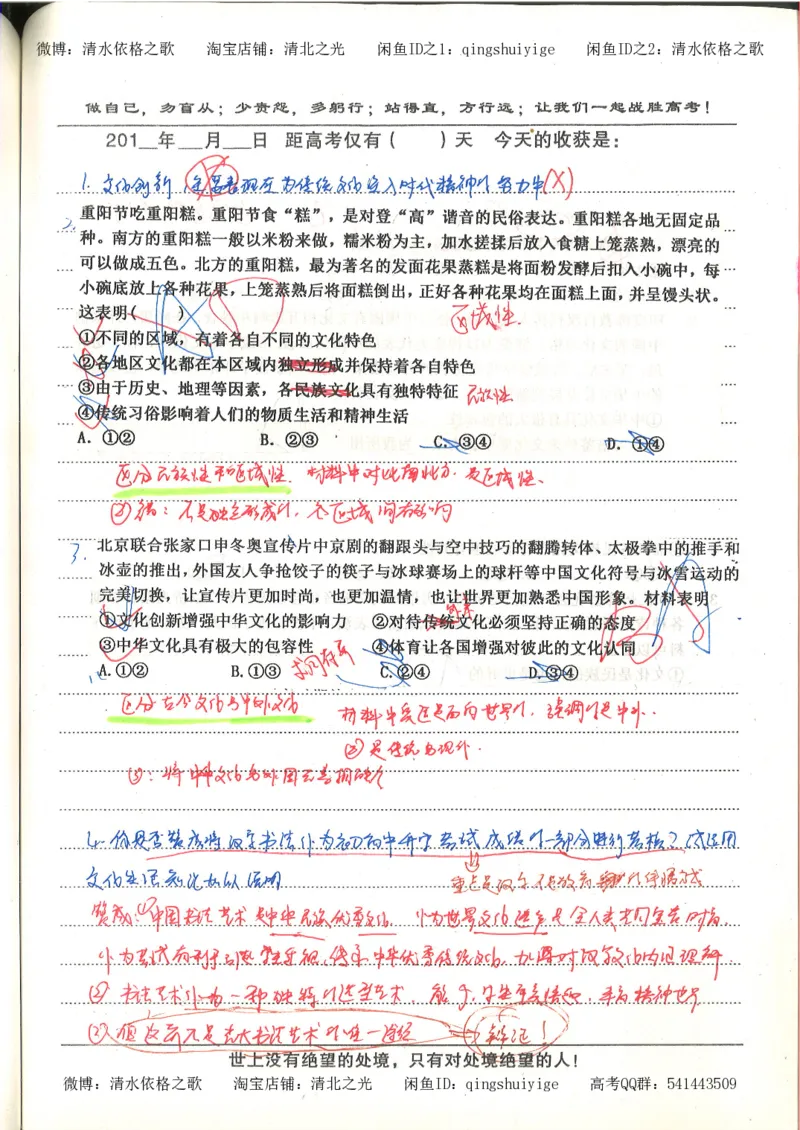 微博：清水依格之歌 淘宝店铺：清北之光 闲鱼ID之1：qingshuiyige 闲鱼ID之2：清水依格之歌
做自己，勿盲从；少责怨，多躬行；站得直，方行远；让我们一起战胜高考！
201__年___月___日 距高考仅有（ ）天 今天的收获是：
1. 文化创新 (X)
2.
重阳节吃重阳糕。重阳节食“糕”，是对登“高”谐音的民俗表达。重阳糕各地无固定品
种。南方的重阳糕一般以米粉来做，糯米粉为主，加水搓揉后放入食糖上笼蒸熟，漂亮的
可以做成五色。北方的重阳糕，最为著名的发面花果蒸糕是将面粉发酵后扣入小碗中，每
小碗底放上各种花果，上笼蒸熟后将面糕倒出，正好各种花果均在面糕上面，并呈馒头状。
这表明( )
区域性.
①不同的区域，有着各自不同的文化特色
②各地区文化都在本区域内独立形成并保持着各自特色
③由于历史、地理等因素，各民族文化具有独特特征 民族性
④传统习俗影响着人们的物质生活和精神生活
A. ①② B. ②③ C. ③④ D. ①④
区分民族性和区域性. 材料中对比南北方. 是区域性、
②错：不是独立形成的，各区域间有影响
3.
北京联合张家口申冬奥宣传片中京剧的翻跟头与空中技巧的翻腾转体、太极拳中的推手和
冰壶的推出，外国友人争抢饺子的筷子与冰球赛场上的球杆等中国文化符号与冰雪运动的
完美切换，让宣传片更加时尚，也更加温情，也让世界更加熟悉中国形象。材料表明
①文化创新增强中华文化的影响力 ②对待传统文化必须坚持正确的态度
③中华文化具有极大的包容性 ④体育让各国增强对彼此的文化认同
求同存异
A.①② B.①③ C.②④ D.③④
区分古今文化与中外文化 材料中 是面向世界的，强调的是中外.
②是传统与现代.
③：将中华文化与外国元素相融合
4. 你是否赞成将汉字书法作为初高中升学考试成绩的一部分进行考核？试运用
文化生活知识加以说明
赞成：①中国书法艺术是中华民族优秀文化. 作为世界文化遗产是全人类共同宝贵财富.
作为考试有利于 传承中华优秀传统文化. 加深对汉字文化内涵理解
② 书法艺术作为一种独特的造型艺术，
世上没有绝望的处境，只有对处境绝望的人！
微博：清水依格之歌 淘宝店铺：清北之光 闲鱼ID：qingshuiyige 高考QQ群：541443509